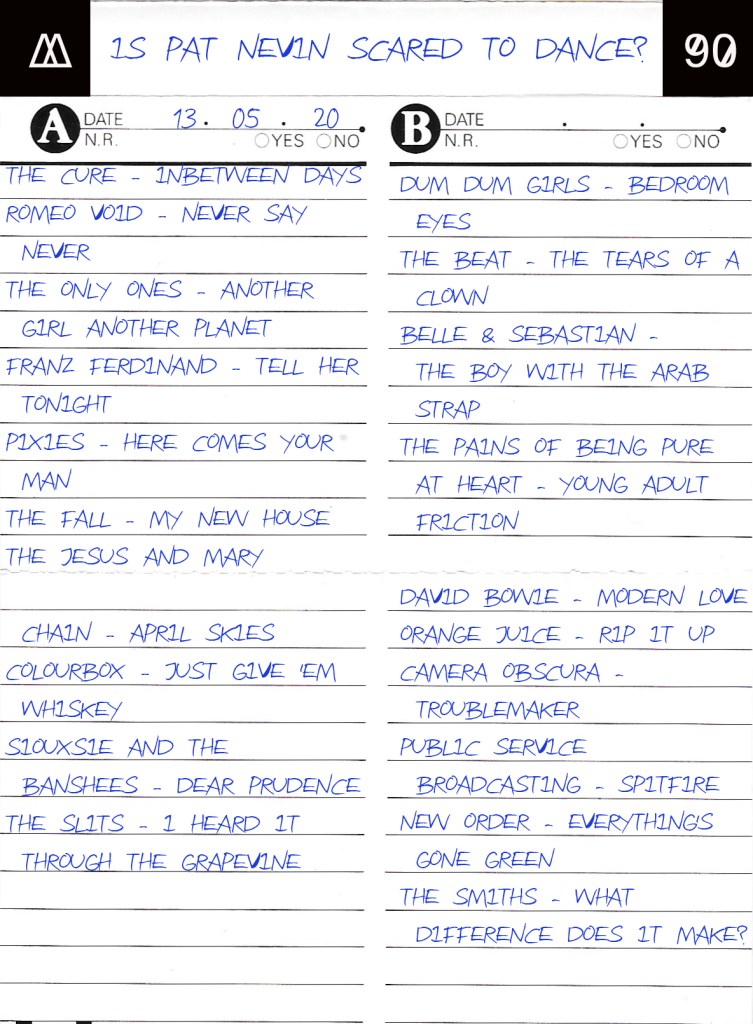 IS PAT NEVIN SCARED TO DANCE?
90
A DATE 13 . 05 . 20
N.R. YES NO
THE CURE - INBETWEEN DAYS
ROMEO VOID - NEVER SAY
NEVER
THE ONLY ONES - ANOTHER
GIRL ANOTHER PLANET
FRANZ FERDINAND - TELL HER
TONIGHT
PIXIES - HERE COMES YOUR
MAN
THE FALL - MY NEW HOUSE
THE JESUS AND MARY
CHAIN - APRIL SKIES
COLOURBOX - JUST GIVE 'EM
WHISKEY
SIOUXSIE AND THE
BANSHEES - DEAR PRUDENCE
THE SLITS - I HEARD IT
THROUGH THE GRAPEVINE
B DATE . .
N.R. YES NO
DUM DUM GIRLS - BEDROOM
EYES
THE BEAT - THE TEARS OF A
CLOWN
BELLE & SEBASTIAN -
THE BOY WITH THE ARAB
STRAP
THE PAINS OF BEING PURE
AT HEART - YOUNG ADULT
FRICTION
DAVID BOWIE - MODERN LOVE
ORANGE JUICE - RIP IT UP
CAMERA OBSCURA -
TROUBLEMAKER
PUBLIC SERVICE
BROADCASTING - SPITFIRE
NEW ORDER - EVERYTHING'S
GONE GREEN
THE SMITHS - WHAT
DIFFERENCE DOES IT MAKE?